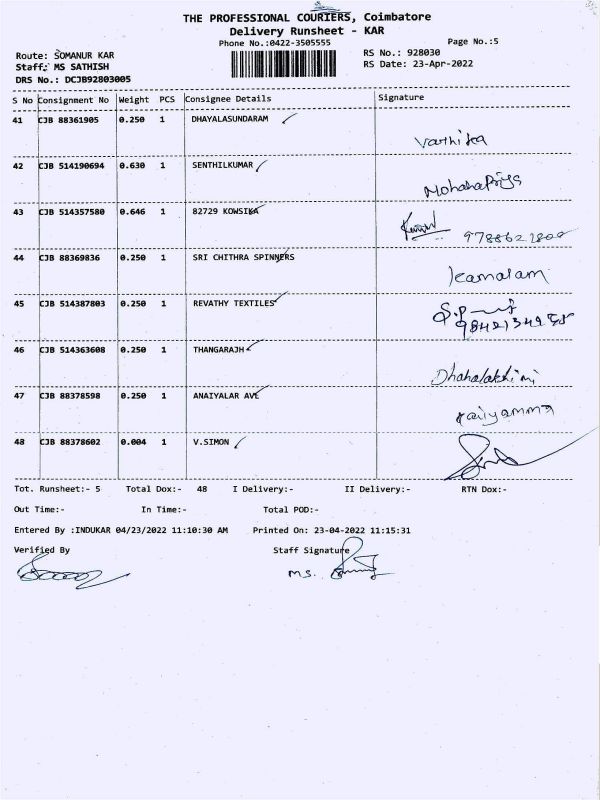 THE PROFESSIONAL COURIERS, Coimbatore
Delivery Runsheet - KAR
Phone No.:0422-3505555
Page No.:5
Route: SOMANUR KAR
RS No.: 928030
Staff: MS SATHISH
RS Date: 23-Apr-2022
DRS No.: DCJB92803005
S No Consignment No Weight PCS Consignee Details Signature
41 CJB 88361905 0.250 1 DHAYALASUNDARAM
Varthika
42 CJB 514190694 0.630 1 SENTHILKUMAR
MohanaPriya
43 CJB 514357580 0.646 1 82729 KOWSIKA
44 CJB 88369836 0.250 1 SRI CHITHRA SPINNERS
kamalam
45 CJB 514387803 0.250 1 REVATHY TEXTILES
46 CJB 514363608 0.250 1 THANGARAJH
Dhanalakshimi
47 CJB 88378598 0.250 1 ANAIYALAR AVE
48 CJB 88378602 0.004 1 V.SIMON
Tot. Runsheet:- 5 Total Dox:- 48 I Delivery:- II Delivery:- RTN Dox:-
Out Time:- In Time:- Total POD:-
Entered By :INDUKAR 04/23/2022 11:10:30 AM Printed On: 23-04-2022 11:15:31
Verified By Staff Signature
MS.